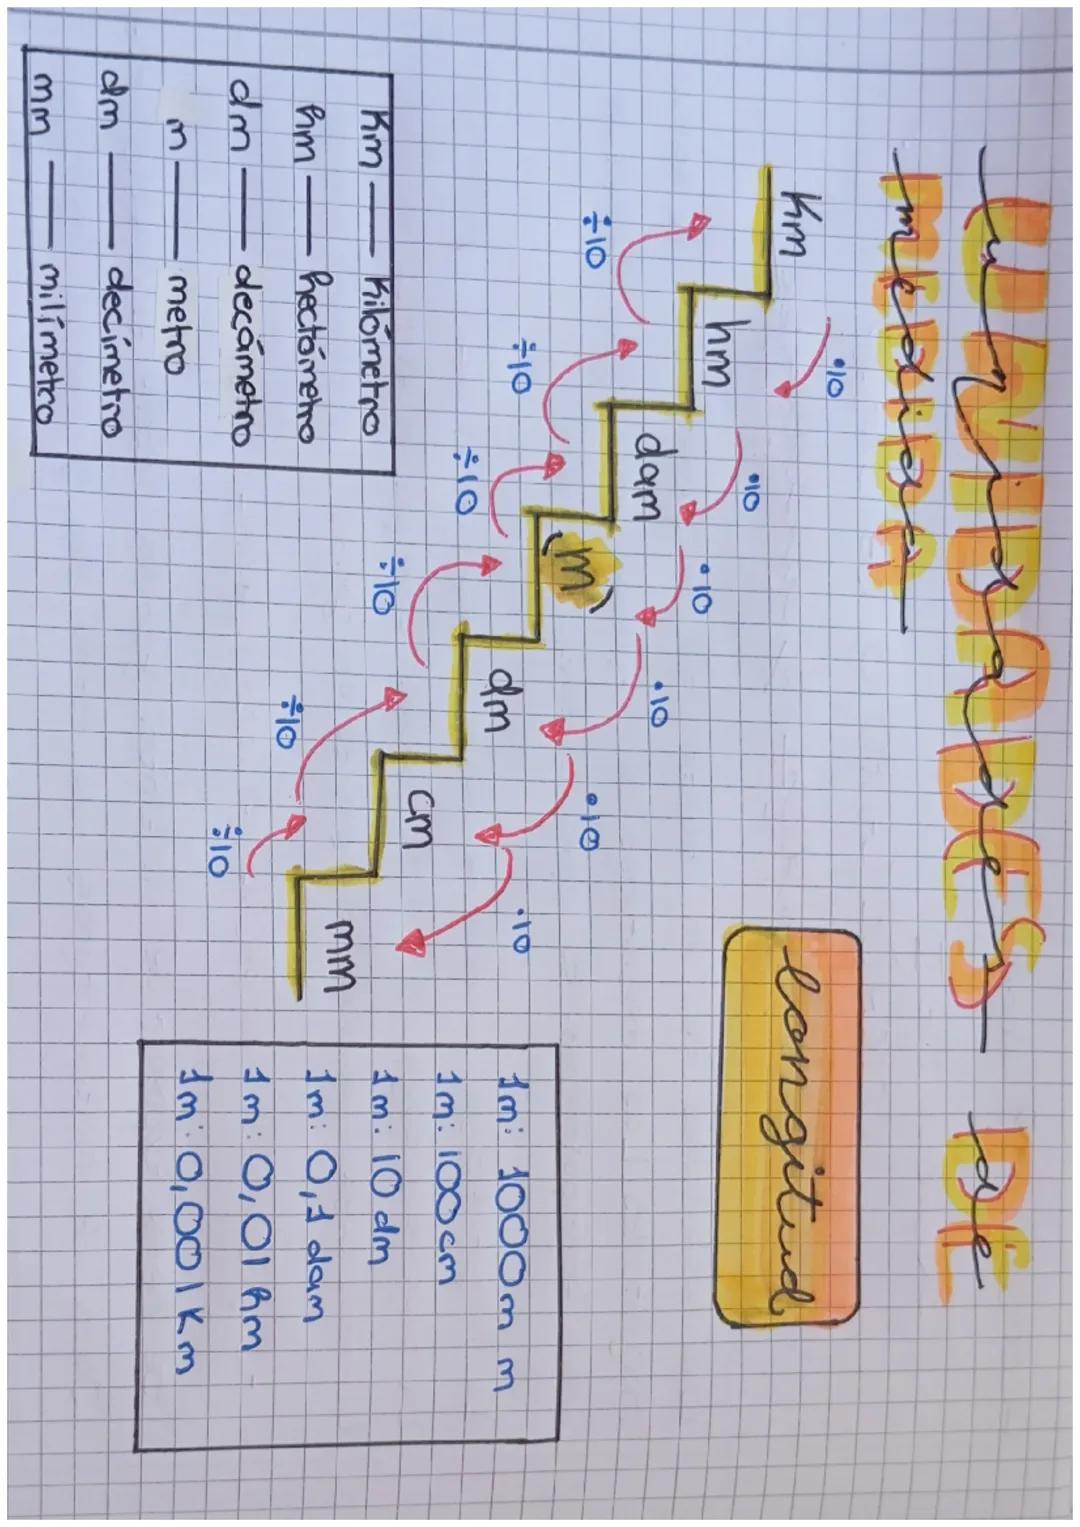 UNIDADES DE
unidades de
MEDIDA
medida
longitud
Km
hm
dam
m
dm
cm
mm
·10
·10
·10
·10
·10
·10
÷10
÷10
÷10
÷10
÷10
÷10
Km — Kilómetro
hm — hectómetro
dm — decámetro
m — metro
dm — decímetro
mm — milímetro
1m: 1000m m
1m: 100cm
1m: 10 dm
1m: 0,1 dam
1m: 0,01 hm
1m: 0,001 Km